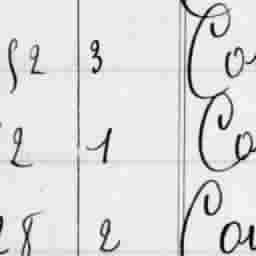 52 3 Co
2 1 Co
28 2 Cou